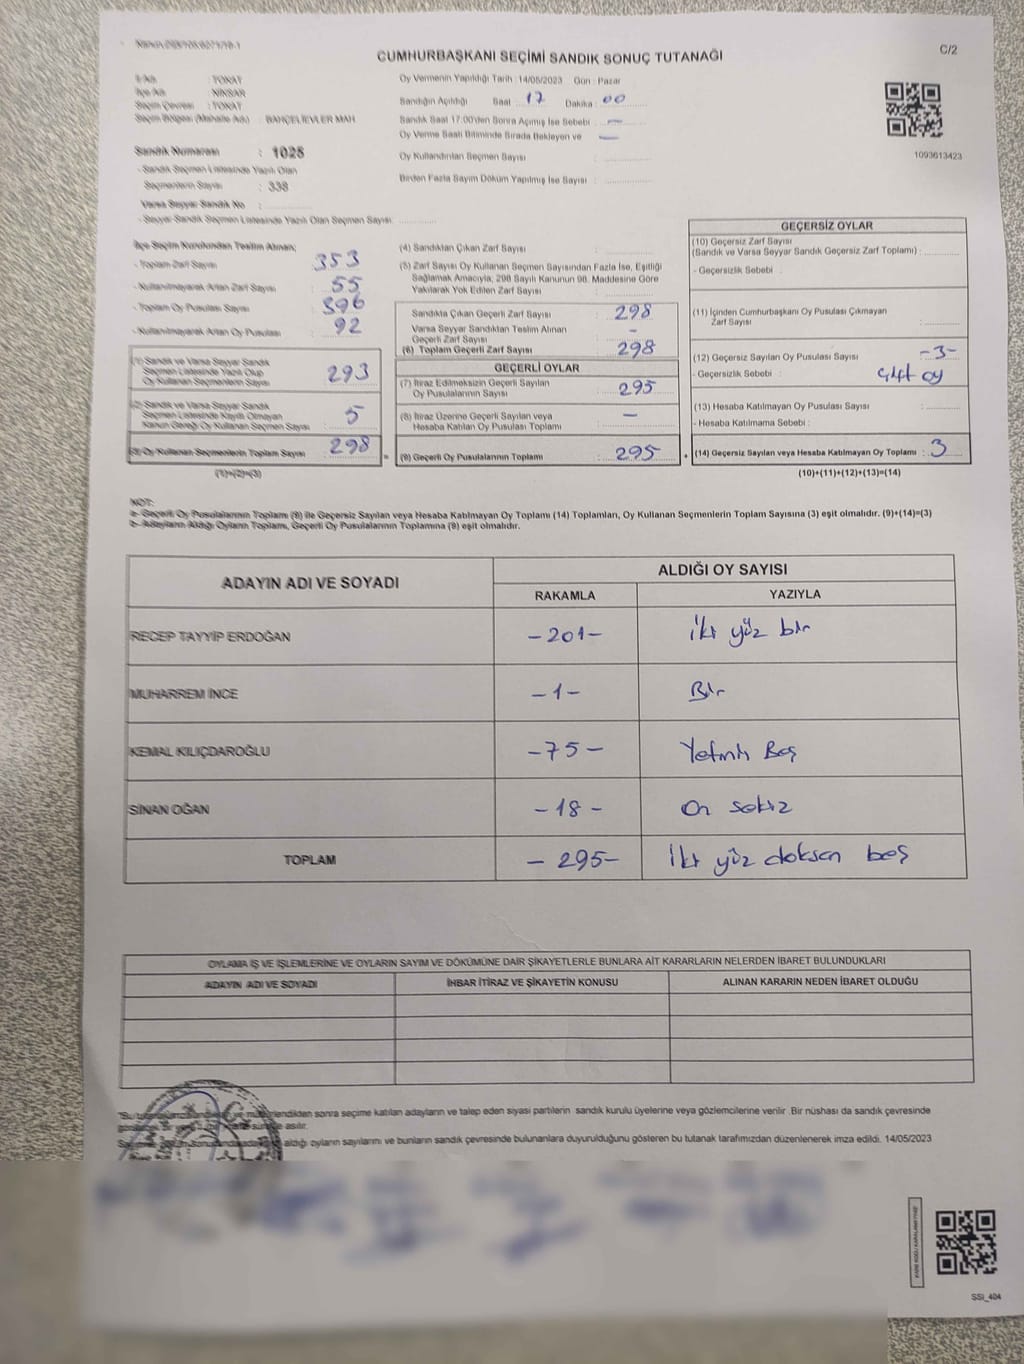 C/2
CUMHURBAŞKANI SEÇİMİ SANDIK SONUÇ TUTANAĞI
İli Adı : TOKAT
İlçe Adı : NİKSAR
Seçim Çevresi : TOKAT
Seçim Bölgesi (Mahalle Adı) : BAHÇELİEVLER MAH
Sandık Numarası : 1025
- Sandık Seçmen Listesinde Yazılı Olan
Seçmenlerin Sayısı : 338
Varsa Seyyar Sandık No :
- Seyyar Sandık Seçmen Listesinde Yazılı Olan Seçmen Sayısı:
Oy Vermenin Yapıldığı Tarih : 14/05/2023 Gün : Pazar
Sandığın Açıldığı Saat : 17 Dakika : 00
Sandık Saat 17:00'den Sonra Açımış İse Sebebi : —
Oy Verme Saati Bitiminde Sırada Bekleyen ve —
Oy Kullandırılan Seçmen Sayısı :
Birden Fazla Sayım Döküm Yapılmış İse Sayısı :
1093613423
İlçe Seçim Kurulundan Teslim Alınan;
- Toplam Zarf Sayısı : 353
- Kullanılmayarak Artan Zarf Sayısı : 55
- Toplam Oy Pusulası Sayısı : 396
- Kullanılmayarak Artan Oy Pusulası : 92
(1) Sandık ve Varsa Seyyar Sandık
Seçmen Listesinde Yazılı Olup
Oy Kullanan Seçmenlerin Sayısı : 293
(2) Sandık ve Varsa Seyyar Sandık
Seçmen Listesinde Kayıtlı Olmayan
Kanun Gereği Oy Kullanan Seçmen Sayısı : 5
(3) Oy Kullanan Seçmenlerin Toplam Sayısı : 298
(1)+(2)=(3)
(4) Sandıktan Çıkan Zarf Sayısı :
(5) Zarf Sayısı Oy Kullanan Seçmen Sayısından Fazla İse, Eşitliği
Sağlamak Amacıyla; 298 Sayılı Kanunun 98. Maddesine Göre
Yakılarak Yok Edilen Zarf Sayısı :
Sandıkta Çıkan Geçerli Zarf Sayısı : 298
Varsa Seyyar Sandıktan Teslim Alınan
Geçerli Zarf Sayısı : –
(6) Toplam Geçerli Zarf Sayısı : 298
GEÇERLİ OYLAR
(7) İtiraz Edilmeksizin Geçerli Sayılan
Oy Pusulalarının Sayısı : 295
(8) İtiraz Üzerine Geçerli Sayılan veya
Hesaba Katılan Oy Pusulası Toplamı : —
(9) Geçerli Oy Pusulalarının Toplamı : 295
GEÇERSİZ OYLAR
(10) Geçersiz Zarf Sayısı
(Sandık ve Varsa Seyyar Sandık Geçersiz Zarf Toplamı) :
- Geçersizlik Sebebi :
(11) İçinden Cumhurbaşkanı Oy Pusulası Çıkmayan
Zarf Sayısı :
(12) Geçersiz Sayılan Oy Pusulası Sayısı : -3-
- Geçersizlik Sebebi : Çift oy
(13) Hesaba Katılmayan Oy Pusulası Sayısı :
- Hesaba Katılmama Sebebi :
(14) Geçersiz Sayılan veya Hesaba Katılmayan Oy Toplamı : 3
(10)+(11)+(12)+(13)=(14)
NOT:
a- Geçerli Oy Pusulalarının Toplamı (9) ile Geçersiz Sayılan veya Hesaba Katılmayan Oy Toplamı (14) Toplamları, Oy Kullanan Seçmenlerin Toplam Sayısına (3) eşit olmalıdır. (9)+(14)=(3)
b- Adayların Aldığı Oyların Toplamı, Geçerli Oy Pusulalarının Toplamına (9) eşit olmalıdır.
ADAYIN ADI VE SOYADI ALDIĞI OY SAYISI
RAKAMLA YAZIYLA
RECEP TAYYİP ERDOĞAN -201- İki yüz bir
MUHARREM İNCE -1- Bir
KEMAL KILIÇDAROĞLU -75- Yetmiş Beş
SİNAN OĞAN -18- On sekiz
TOPLAM -295- İki yüz doksan beş
OYLAMA İŞ VE İŞLEMLERİNE VE OYLARIN SAYIM VE DÖKÜMÜNE DAİR ŞİKAYETLERLE BUNLARA AİT KARARLARIN NELERDEN İBARET BULUNDUKLARI
ADAYIN ADI VE SOYADI İHBAR İTİRAZ VE ŞİKAYETİN KONUSU ALINAN KARARIN NEDEN İBARET OLDUĞU
sonra seçime katılan adayların ve talep eden siyasi partilerin sandık kurulu üyelerine veya gözlemcilerine verilir .Bir nüshası da sandık çevresinde
asılır.
aldığı oyların sayılarını ve bunların sandık çevresinde bulunanlara duyurulduğunu gösteren bu tutanak tarafımızdan düzenlenerek imza edildi. 14/05/2023
SSI_404